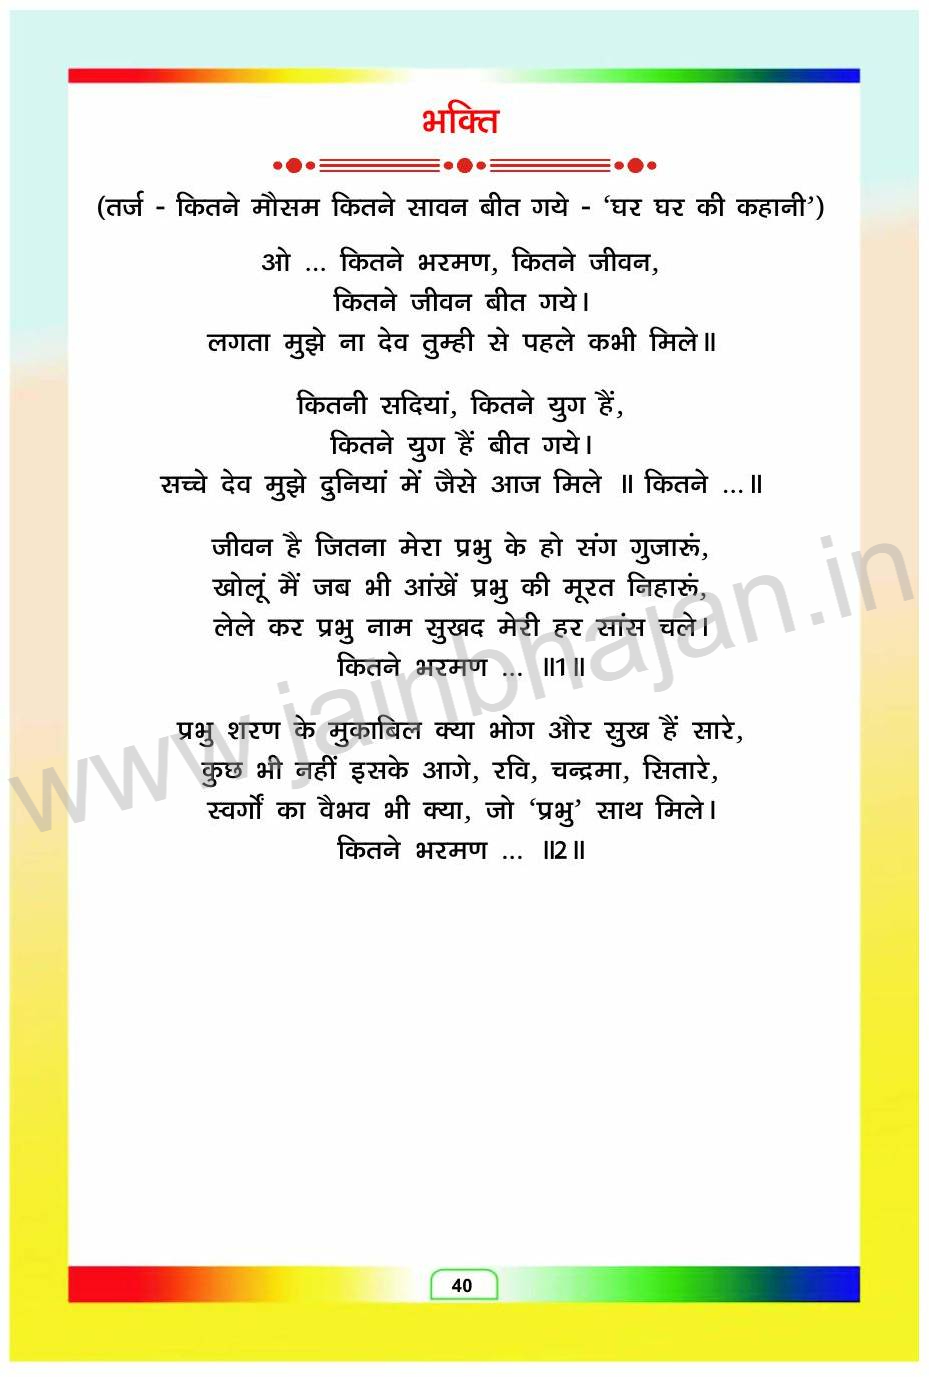 भक्ति
(तर्ज - कितने मौसम कितने सावन बीत गये - ‘घर घर की कहानी’)
ओ ... कितने भरमण, कितने जीवन,
कितने जीवन बीत गये।
लगता मुझे ना देव तुम्ही से पहले कभी मिले॥
कितनी सदियां, कितने युग हैं,
कितने युग हैं बीत गये।
सच्चे देव मुझे दुनियां में जैसे आज मिले ॥ कितने ...॥
जीवन है जितना मेरा प्रभु के हो संग गुजारूं,
खोलूं मैं जब भी आंखें प्रभु की मूरत निहारूं,
लेले कर प्रभु नाम सुखद मेरी हर सांस चले।
कितने भरमण ... ॥1॥
प्रभु शरण के मुकाबिल क्या भोग और सुख हैं सारे,
कुछ भी नहीं इसके आगे, रवि, चन्द्रमा, सितारे,
स्वर्गों का वैभव भी क्या, जो ‘प्रभु’ साथ मिले।
कितने भरमण ... ॥2॥
www.jainbhajan.in
40